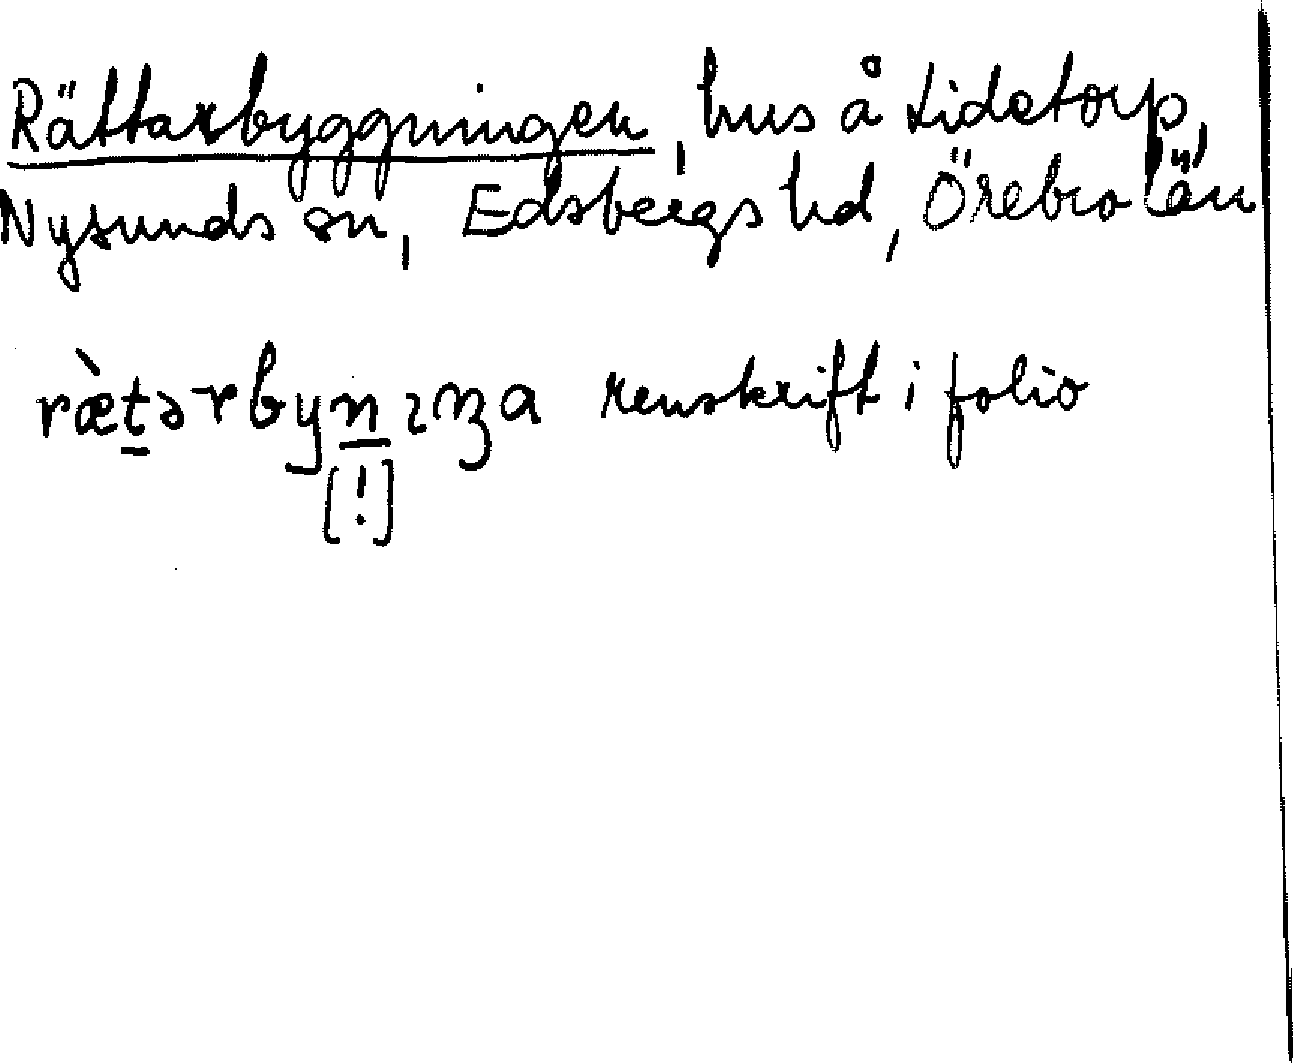 Rättarbyggningen, hus å Lidetorp,
Nysunds sn, Edsbergs hd, Örebro län
ræ̀tərbynıŋa renskrift i folio
[!]